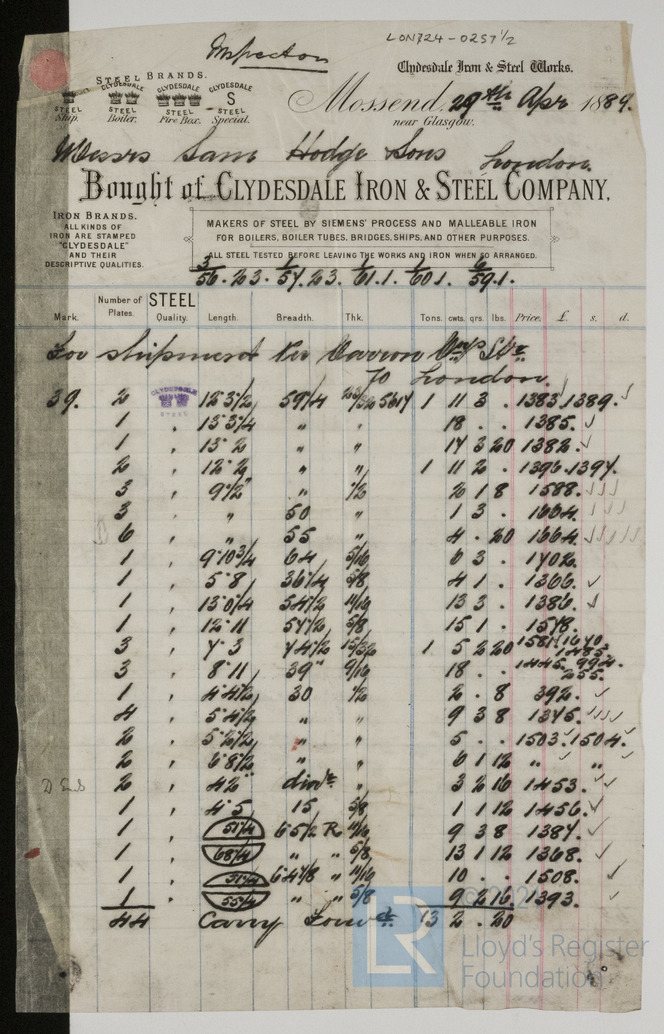 LON724-0257 1/2
Inspector
STEEL BRANDS.
CLYDESDALE CLYDESDALE CLYDESDALE
S
STEEL STEEL STEEL STEEL
Ship. Boiler. Fire Box. Special.
Clydesdale Iron & Steel Works.
Mossend, 29th Apr 1889.
near Glasgow.
Messrs Sam Hodge Sons London.
Bought of CLYDESDALE IRON & STEEL COMPANY,
IRON BRANDS.
ALL KINDS OF
IRON ARE STAMPED
"CLYDESDALE"
AND THEIR
DESCRIPTIVE QUALITIES.
MAKERS OF STEEL BY SIEMENS' PROCESS AND MALLEABLE IRON
FOR BOILERS, BOILER TUBES, BRIDGES, SHIPS, AND OTHER PURPOSES.
ALL STEEL TESTED BEFORE LEAVING THE WORKS AND IRON WHEN SO ARRANGED.
Mark. Number of Plates. STEEL Quality. Length. Breadth. Thk. Tons. cwts. qrs. lbs. Price. £. s. d.
For shipment per Carron Coy's Str
To London.
39. 2 CLYDESDALE STEEL 12·3½ 59¼ 23/32 1 11 3 . 1383.1389.
1 " 13·3¾ " " 18 . . 1385.
1 " 13·2 " " 17 3 20 1382.
2 " 12·2 " " 1 11 2 . 1396.1397.
3 " 9½ " ½ 2 1 8 1588.
3 " " 50 " 1 3 . 1664.
6 " " 55 " 4 . 20 1664.
1 " 9·10¾ 64 5/16 6 3 . 1402.
1 " 5·8 36¼ 5/8 4 1 . 1366.
1 " 13·0¼ 54½ 11/16 13 3 . 1386.
1 " 12·11 57½ 5/8 15 1 . 1578.
3 " 7·3 74½ 15/32 1 5 2 20 1581.1640.
1485.
3 " 8·11 39" 9/16 18 . . 1445. 994.
255.
1 " 4·4½ 30 ½ 2 . 8 392.
4 " 5·4½ " " 9 3 8 1345.
2 " 5·2½ " " 5 . . 1503.1504.
2 " 6·8½ " " 6 1 12 " "
2 " 42" diar " 3 2 16 1453.
1 " 4·5 15 5/8 1 1 12 1456.
1 " 51¼ 6·5½ R 11/16 9 3 8 1387.
1 " 68¼ " " 5/8 13 1 12 1368.
1 " 51¼ 6·4⅛ " 11/16 10 . . 1508.
1 " 55¼ " " 5/8 9 2 16 1393.
44 Carry Forwd. 13 2 . 20
© 2021
LR
Lloyd's Register
Foundation